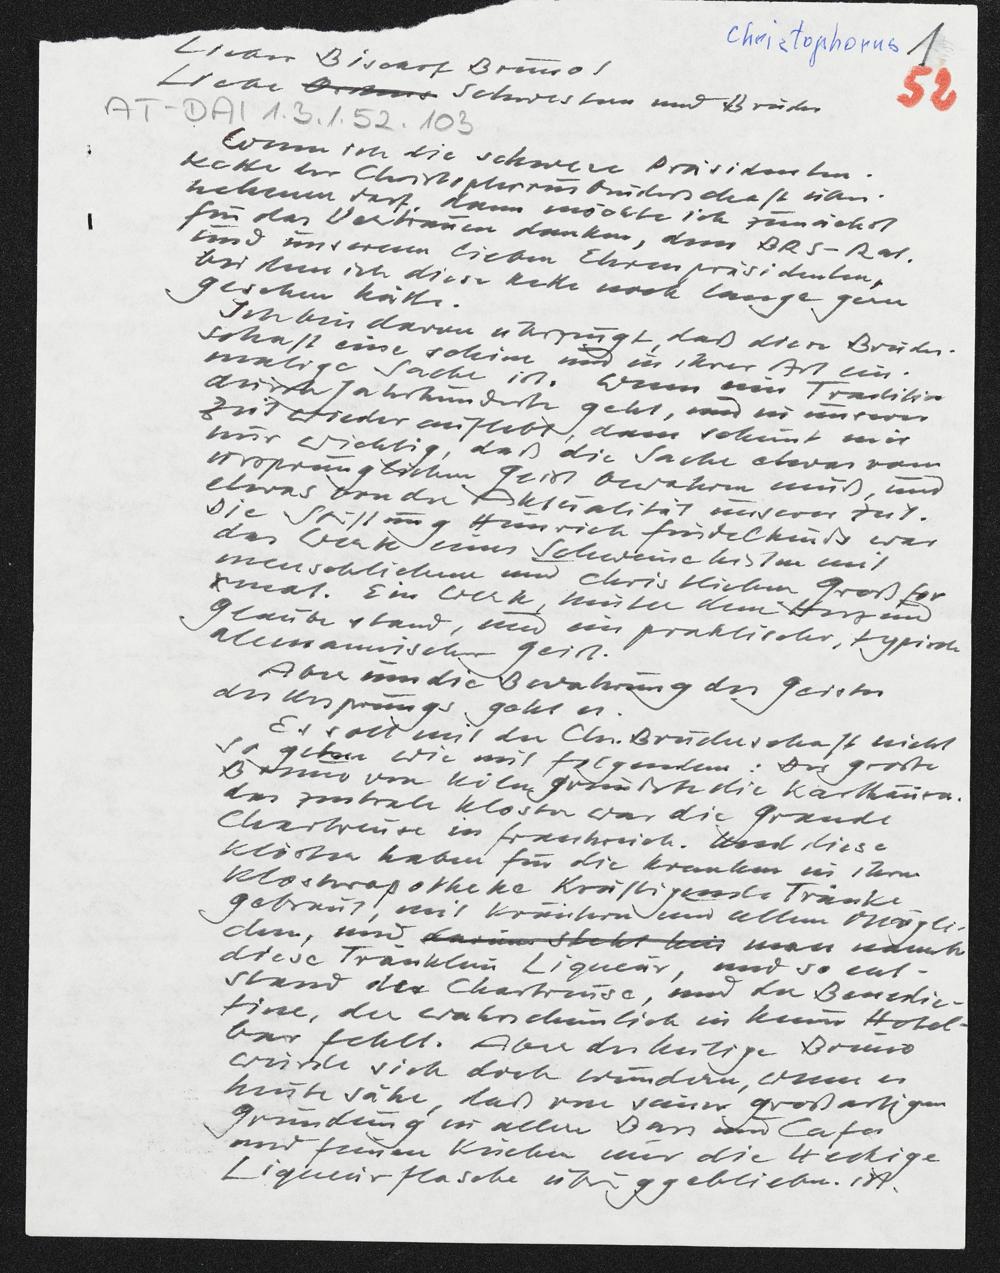 Christophorus 1
52
Lieber Bischof Bruno!
Liebe Schwestern und Brüder
AT-DAI 1.3.1.52.103
Wenn ich die schwere Präsidenten-
kette der Christophorusbruderschaft über-
nehmen darf, dann möchte ich zunächst
für das Vertrauen danken, dem BRS-Rat
und unserem lieben Ehrenpräsidenten,
bei dem ich diese Kette noch lange gern
gesehen hätte.
Ich bin davon überzeugt, daß diese Bruder-
schaft eine schöne und in ihrer Art ein-
malige Sache ist. Wenn eine Tradition
durch Jahrhunderte geht, und in unserer
Zeit wieder auflebt, dann scheint mir
nur wichtig, daß die Sache etwas vom
ursprünglichen Geist bewahren muß, und
etwas von der Aktualität unserer Zeit.
Die Stiftung Heinrich Findelkinds war
das Werk eines Schweinehirten mit
menschlichem und christlichem Großfor
rmat. Ein Werk, hinter dem Herz und
Glaube stand, und ein praktischer, typisch
alemannischer Geist.
Aber um die Bewahrung des Geistes
des Ursprungs geht es.
Es soll mit der Chr. Bruderschaft nicht
so gehn wie mit folgendem: Der große
Bruno von Köln gründete die Karthäuser.
das zentrale Kloster war die Grande
Chartreuse in Frankreich. Und diese
Klöster haben für die Kranken in ihrer
Klosterapotheke kräftigende Tränke
gebraut, mit Kräutern und allem Mögli-
chen, und darum steht hier man nannte
diese Tränklein Liqueur, und so ent-
stand der Chartreuse, und der Benedic-
tine, der wahrscheinlich in keiner Hotel-
bar fehlt. Aber der heilige Bruno
würde sich doch wundern, wenn er
heute sähe, daß von seiner großartigen
Gründung in allen Bars und Cafes
und feinen Küchen nur die
Liqueurflasche übriggeblieben ist.